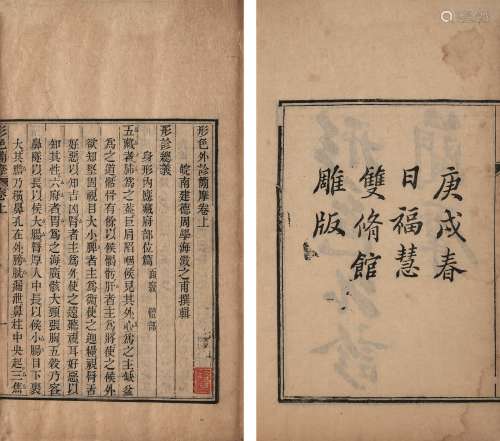 庚戌春
日福慧
雙脩館
雕版
形色外診簡摩卷上
皖南建德周學海澂之甫撰輯
形診總義
身形內應藏府部位篇 體部
五藏者肺為之蓋巨肩陷咽候見其外心為之主缺盆
為之道骺骨有餘以候𩩲骬肝者主為將使之候外
欲知堅固視目大小脾者主為衛使之迎糧視脣舌
好惡以知吉凶腎者主為外使之遠聽視耳好惡以
知其性六府者胃為之海廣骸大頸張胸五穀乃容
鼻隧以長以候大腸脣厚人中長以候小腸目下裹
大其膽乃橫鼻孔在外膀胱漏泄鼻柱中央起三焦
形色簡摩 卷上 一